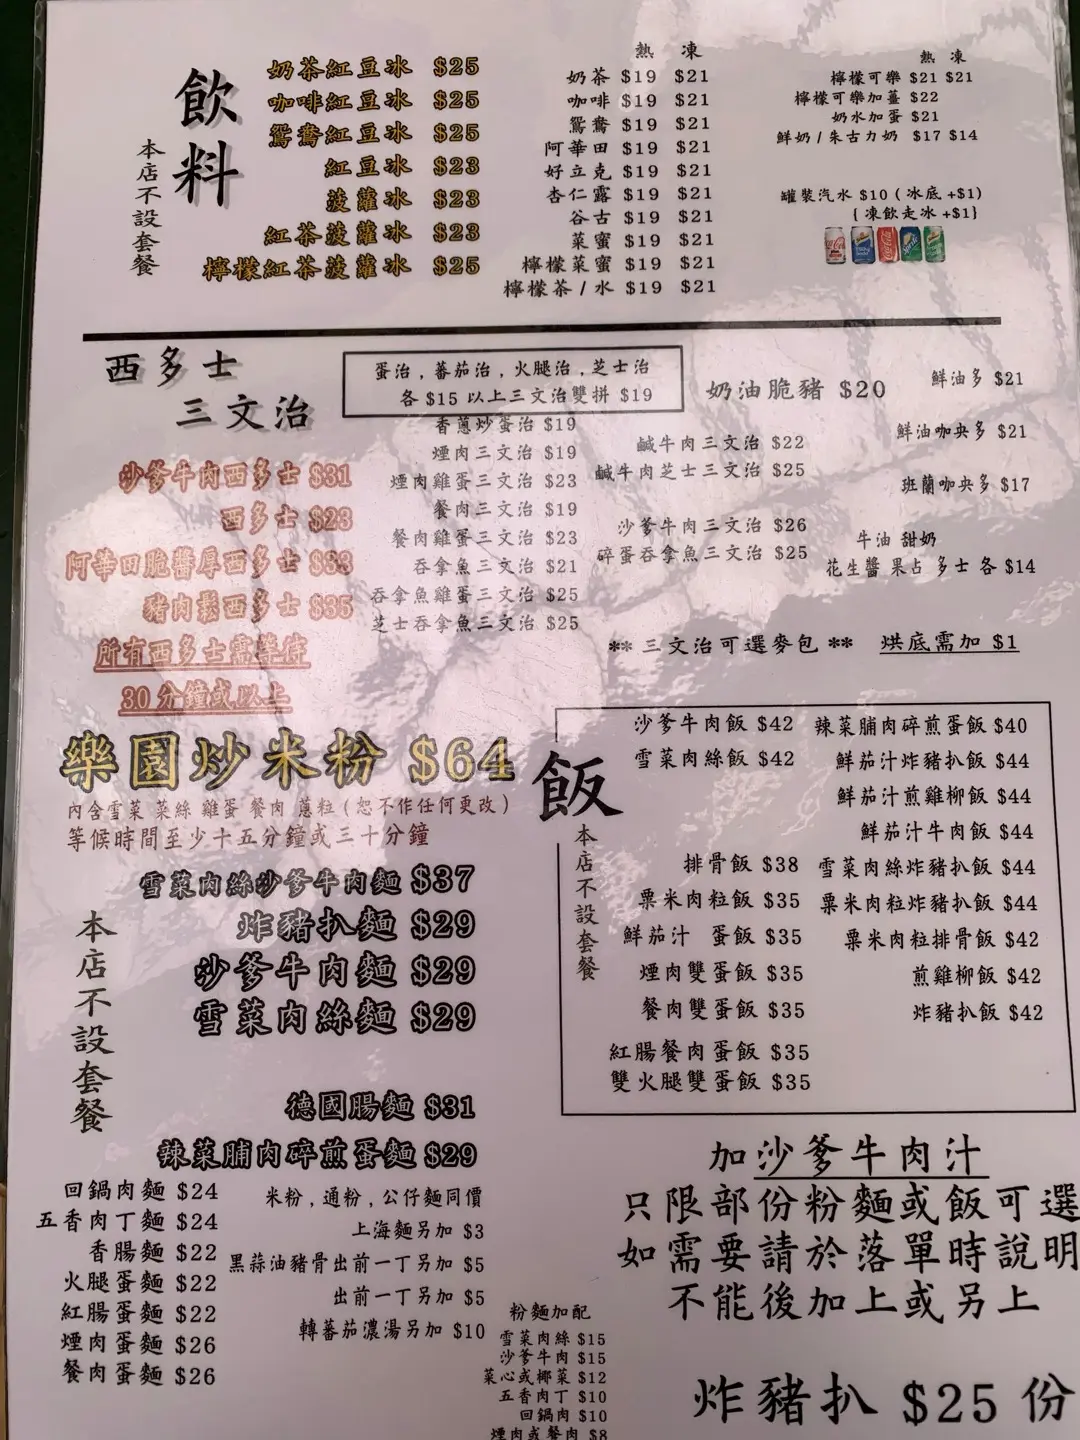 飲料
本店不設套餐
奶茶紅豆冰 $25
咖啡紅豆冰 $25
鴛鴦紅豆冰 $25
紅豆冰 $23
菠蘿冰 $23
紅茶菠蘿冰 $23
檸檬紅茶菠蘿冰 $25
熱 凍
奶茶 $19 $21
咖啡 $19 $21
鴛鴦 $19 $21
阿華田 $19 $21
好立克 $19 $21
杏仁露 $19 $21
谷古 $19 $21
菜蜜 $19 $21
檸檬菜蜜 $19 $21
檸檬茶 / 水 $19 $21
熱 凍
檸檬可樂 $21 $21
檸檬可樂加薑 $22
奶水加蛋 $21
鮮奶 / 朱古力奶 $17 $14
罐裝汽水 $10 ( 冰底 +$1)
{ 凍飲走冰 +$1}
西多士
三文治
沙爹牛肉西多士 $31
西多士 $23
阿華田脆醬厚西多士 $33
豬肉鬆西多士 $35
所有西多士需等待
30 分鐘或以上
蛋治 , 蕃茄治 , 火腿治 , 芝士治
各 $15 以上三文治雙拼 $19
香蔥炒蛋治 $19
煙肉三文治 $19
煙肉雞蛋三文治 $23
餐肉三文治 $19
餐肉雞蛋三文治 $23
吞拿魚三文治 $21
吞拿魚雞蛋三文治 $25
芝士吞拿魚三文治 $25
奶油脆豬 $20
鹹牛肉三文治 $22
鹹牛肉芝士三文治 $25
沙爹牛肉三文治 $26
碎蛋吞拿魚三文治 $25
鮮油多 $21
鮮油咖央多 $21
班蘭咖央多 $17
牛油 甜奶
花生醬 果占 多士 各 $14
** 三文治可選麥包 ** 烘底需加 $1
樂園炒米粉 $64
內含雪菜 菜絲 雞蛋 餐肉 蔥粒 ( 恕不作任何更改 )
等候時間至少十五分鐘或三十分鐘
本店不設套餐
雪菜肉絲沙爹牛肉麵 $37
炸豬扒麵 $29
沙爹牛肉麵 $29
雪菜肉絲麵 $29
德國腸麵 $31
辣菜脯肉碎煎蛋麵 $29
回鍋肉麵 $24
五香肉丁麵 $24
香腸麵 $22
火腿蛋麵 $22
紅腸蛋麵 $22
煙肉蛋麵 $26
餐肉蛋麵 $26
米粉 , 通粉 , 公仔麵同價
上海麵另加 $3
黑蒜油豬骨出前一丁另加 $5
出前一丁另加 $5
轉蕃茄濃湯另加 $10
粉麵加配
雪菜肉絲 $15
沙爹牛肉 $15
菜心或椰菜 $12
五香肉丁 $10
回鍋肉 $10
煙肉或餐肉 $8
飯
本店不設套餐
沙爹牛肉飯 $42
雪菜肉絲飯 $42
排骨飯 $38
粟米肉粒飯 $35
鮮茄汁 蛋飯 $35
煙肉雙蛋飯 $35
餐肉雙蛋飯 $35
紅腸餐肉蛋飯 $35
雙火腿雙蛋飯 $35
辣菜脯肉碎煎蛋飯 $40
鮮茄汁炸豬扒飯 $44
鮮茄汁煎雞柳飯 $44
鮮茄汁牛肉飯 $44
雪菜肉絲炸豬扒飯 $44
粟米肉粒炸豬扒飯 $44
粟米肉粒排骨飯 $42
煎雞柳飯 $42
炸豬扒飯 $42
加沙爹牛肉汁
只限部份粉麵或飯可選
如需要請於落單時說明
不能後加上或另上
炸豬扒 $25 份